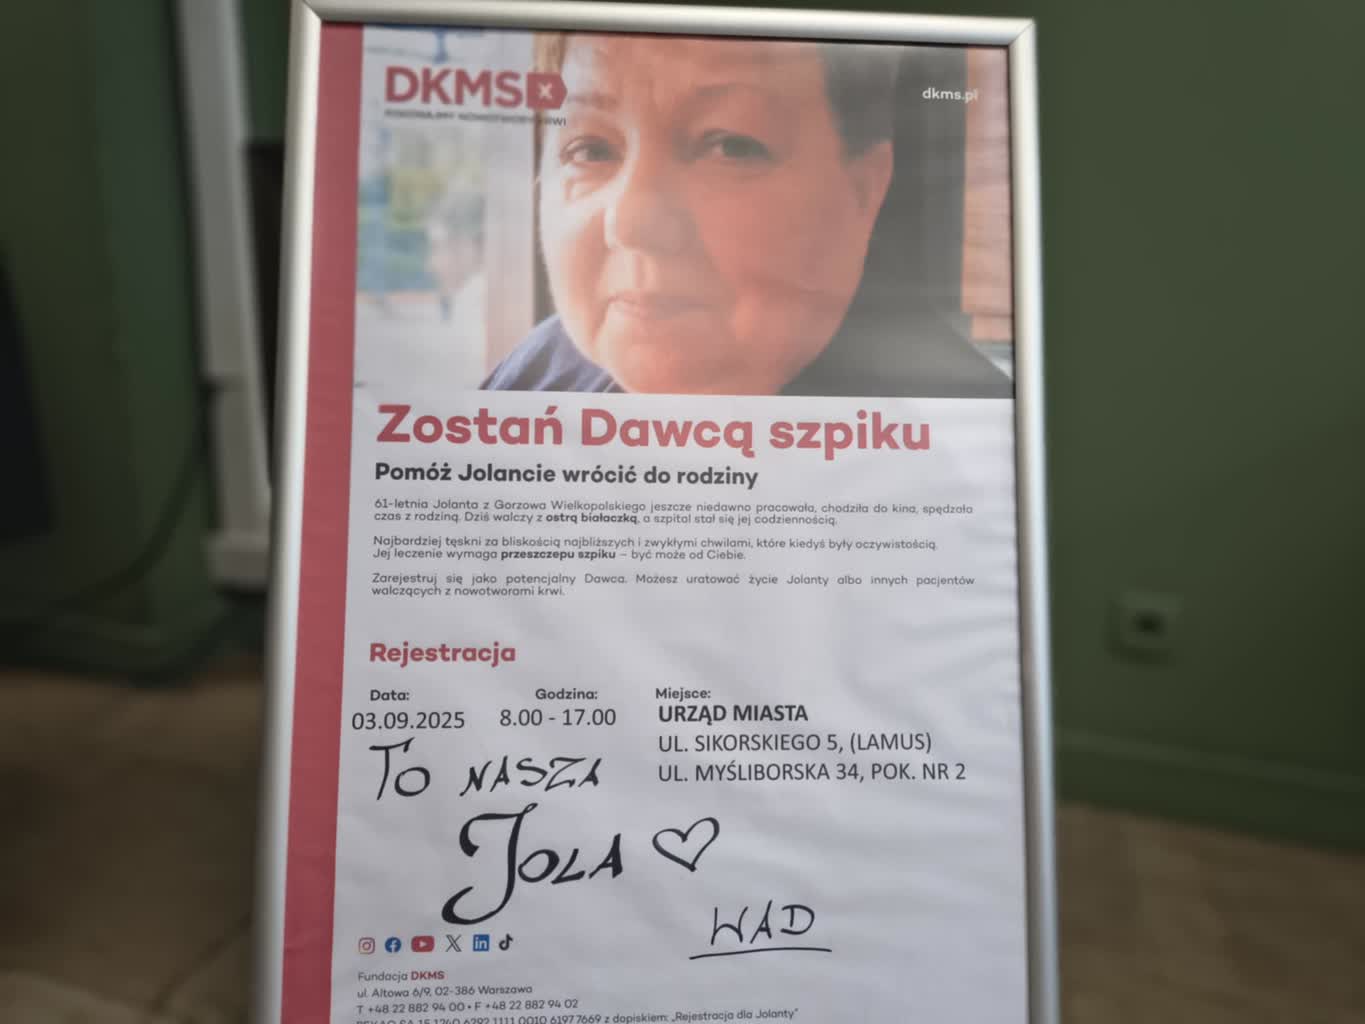 DKMS
dkms.pl
POKONAJMY NOWOTWORY KRWI
Zostań Dawcą szpiku
Pomóż Jolancie wrócić do rodziny
61-letnia Jolanta z Gorzowa Wielkopolskiego jeszcze niedawno pracowała, chodziła do kina, spędzała
czas z rodziną. Dziś walczy z ostrą białaczką, a szpital stał się jej codziennością.
Najbardziej tęskni za bliskością najbliższych i zwykłymi chwilami, które kiedyś były oczywistością.
Jej leczenie wymaga przeszczepu szpiku – być może od Ciebie.
Zarejestruj się jako potencjalny Dawca. Możesz uratować życie Jolanty albo innych pacjentów
walczących z nowotworami krwi.
Rejestracja
Data:
03.09.2025
Godzina:
8.00 - 17.00
Miejsce:
URZĄD MIASTA
UL. SIKORSKIEGO 5, (LAMUS)
UL. MYŚLIBORSKA 34, POK. NR 2
TO NASZA
JOLA
WAD
Fundacja DKMS
ul. Altowa 6/9, 02-386 Warszawa
T +48 22 882 94 00 • F +48 22 882 94 02
PEKAO SA 15 1240 6292 1111 0010 6197 7669 z dopiskiem: „Rejestracja dla Jolanty”